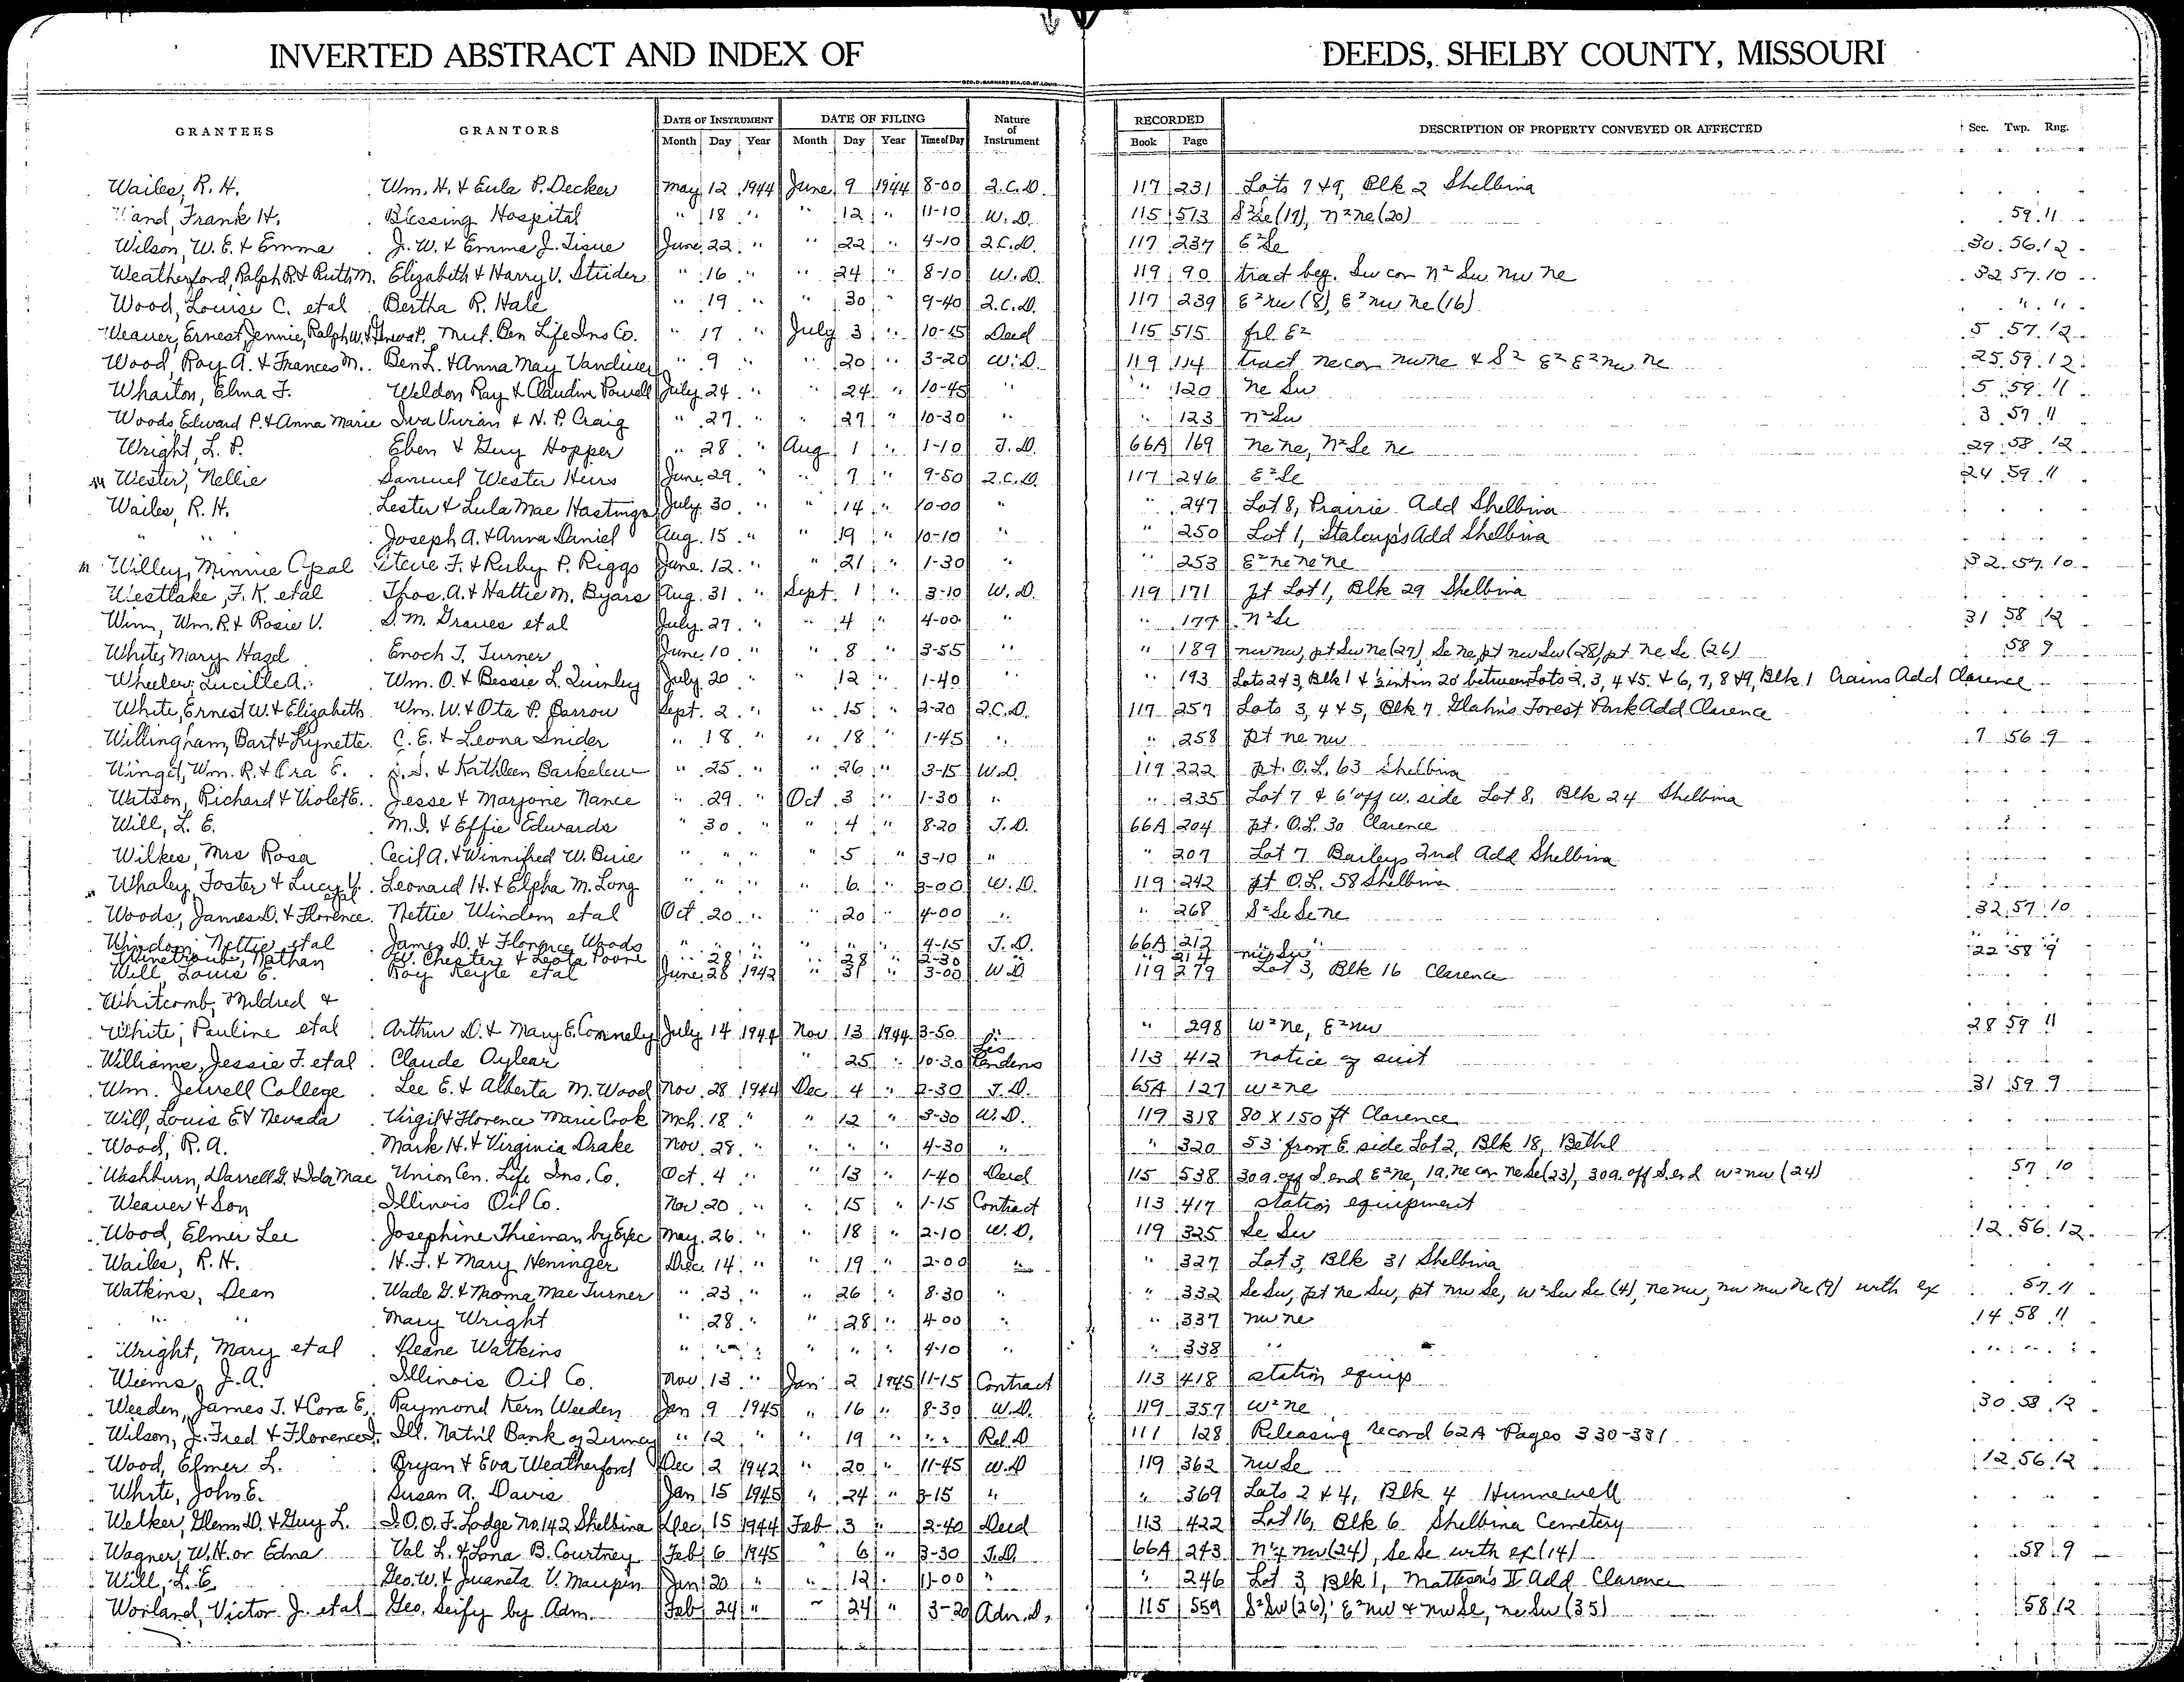 INVERTED ABSTRACT AND INDEX OF DEEDS, SHELBY COUNTY, MISSOURI
GEO. D. BARNARD STA. CO. ST. LOUIS
GRANTEES GRANTORS DATE OF INSTRUMENT DATE OF FILING Nature of Instrument RECORDED DESCRIPTION OF PROPERTY CONVEYED OR AFFECTED Sec. Twp. Rng.
Month Day Year Month Day Year Time of Day Book Page
Wailes, R. H. Wm. H. & Eula P. Decker May 12 1944 June 9 1944 8-00 Q.C.D. 117 231 Lots 7 & 9, Blk 2 Shelbina
Frank H. Blessing Hospital " 18 " " 12 " 11-10 W.D. 115 513 S²Se (19), N²ne (20) 59 11
Wilson, W. E. & Emma J. W. & Emma J. Tisue June 22 " " 22 " 4-10 Q.C.D. 117 237 E²Se 30 56 12
Weatherford, Ralph R & Ruth M. Elizabeth & Harry V. Strider " 16 " " 24 " 8-10 W.D. 119 90 tract beg. Sw cor N² Sw nw ne 32 57 10
Wood, Louise C. etal Bertha R. Hale " 19 " " 30 " 9-40 Q.C.D. 117 239 E²nw (8), E²nw ne (16) " "
Weaver, Ernest, Jennie, Ralph W. & Mut. Ben Life Ins Co. " 17 " July 3 " 10-15 Deed 115 515 frl E² 5 57 12
Wood, Roy A. & Frances M. Ben L. & Anna May Vandiver " 9 " " 20 " 3-20 W.D. 119 114 tract ne cor nw ne & S² E² E² nw ne 25 59 12
Wharton, Elma F. Weldon Ray & Claudine Powell July 24 " " 24 " 10-45 " " 120 ne Sw 5 59 11
Woods, Edward P. & Anna Marie Iva Vivian & H. P. Craig " 27 " " 27 " 10-30 " " 123 n²Sw 3 57 11
Wright, L. P. Eben & Guy Hopper " 28 " Aug 1 " 1-10 T.D. 66A 169 ne ne, N²Se ne 29 58 12
Wester, Nellie Samuel Wester Heirs June 29 " " 7 " 9-50 Q.C.D. 117 246 E²Se 24 59 11
Wailes, R. H. Lester & Lula Mae Hastings July 30 " " 14 " 10-00 " " 247 Lot 8, Prairie Add Shelbina
" " Joseph A. & Anna Daniel Aug. 15 " " 19 " 10-10 " " 250 Lot 1, Staleup's Add Shelbina
Willey, Minnie Opal Steve F. & Ruby P. Riggs June 12 " " 21 " 1-30 " " 253 E² ne ne ne 32 57 10
Westlake, F. K. etal Thos. A. & Hattie M. Byars Aug. 31 " Sept 1 " 3-10 W.D. 119 171 pt Lot 1, Blk 29 Shelbina
Winn, Wm. R & Rosie V. D. M. Graves etal July 27 " " 4 " 4-00 " " 177 N²Se 31 58 12
White, Mary Hazel Enoch T. Turner June 10 " " 8 " 3-55 " " 189 nw nw, pt Sw ne (27), Se ne, pt nw Sw (28), pt ne Se (26) 58 9
Wheeler, Lucille A. Wm. O. & Bessie L. Quinley July 20 " " 12 " 1-40 " " 193 Lots 2 & 3, Blk 1 & ½ int in 20' between Lots 2, 3, 4 & 5 & 6, 7, 8 & 9, Blk 1 Crains Add Clarence
White, Ernest W. & Elizabeth Wm. W. & Ota P. Barrow Sept. 2 " " 15 " 2-20 Q.C.D. 117 257 Lots 3, 4 & 5, Blk 7 Glahn's Forest Park Add Clarence
Willingham, Bart & Lynette C. E. & Leona Snider " 18 " " 18 " 1-45 " " 258 pt ne nw 7 56 9
Winget, Wm. R. & Ora E. & Kathleen Barkelew " 25 " " 26 " 3-15 W.D. 119 222 pt. O.L. 63 Shelbina
Watson, Richard & Violet E. Jesse & Marjorie Nance " 29 " Oct 3 " 1-30 " " 235 Lot 7 & 6' off W. side Lot 8, Blk 24 Shelbina
Will, L. E. M. I. & Effie Edwards " 30 " " 4 " 8-20 T.D. 66A 204 pt. O.L. 30 Clarence
Wilkes, Mrs Rosa Cecil A. & Winnifred W. Buie " " " " 5 " 3-10 " " 207 Lot 7 Baileys 2nd Add Shelbina
Whaley, Foster & Lucy Y. Leonard H. & Elpha M. Long " " " " 6 " 3-00 W.D. 119 242 pt O.L. 58 Shelbina
Woods, James D. & Florence etal Nettie Windom etal Oct 20 " " 20 " 4-00 " " 268 S²Se Se ne 32 57 10
Windom, Nettie etal James D. & Florence Woods " " " " " " 4-15 T.D. 66A 212 " "
Nathan W. Chester & Leota Poore " 28 " " 28 " 2-30 " " 214 nw Sw 22 58 9
Will, Louis E. Roy Keyte etal June 28 1942 " 31 " 3-00 W.D. 119 279 Lot 3, Blk 16 Clarence
Whitcomb, Mildred &
White, Pauline etal Arthur D. & Mary E. Connely July 14 1944 Nov 13 1944 3-50 " " 298 W²ne, E²nw 28 59 11
Williams, Jessie F. etal Claude Oylear " 25 " 10-30 Lis Pendens 113 412 notice of suit
Wm. Jewell College Lee E. & Alberta M. Wood Nov. 28 1944 Dec 4 " 2-30 T.D. 65A 127 W²ne 31 59 9
Will, Louis E & Nevada Virgil & Florence Marie Cook Mch. 18 " " 12 " 3-30 W.D. 119 318 80 X 150 ft Clarence
Wood, R. A. Mark H. & Virginia Drake Nov. 28 " " " " 4-30 " " 320 53' from E side Lot 2, Blk 18, Bethel
Washburn, Darrell G. & Ida Mae Union Cen. Life Ins. Co. Oct. 4 " " 13 " 1-40 Deed 115 538 30a off S end E²ne, 1a. ne cor ne Se (23), 30a. off S end W²nw (24) 57 10
Weaver & Son Illinois Oil Co. Nov. 20 " " 15 " 1-15 Contract 113 417 station equipment
Wood, Elmer Lee Josephine Thieman by Exec May 26 " " 18 " 2-10 W.D. 119 325 Se Sw 12 56 12
Wailes, R. H. H. F. & Mary Heninger Dec. 14 " " 19 " 2-00 " " 327 Lot 3, Blk 31 Shelbina
Watkins, Dean Wade G. & Thoma Mae Turner " 23 " " 26 " 8-30 " " 332 Se Sw, pt ne Sw, pt nw Se, W²Sw Se (4), ne nw, nw nw ne (9) with ex 57 11
" " Mary Wright " 28 " " 28 " 4-00 " " 337 nw ne 14 58 11
Wright, Mary etal Deane Watkins " " " " " " 4-10 " " 338 " " " "
Wiems, J. A. Illinois Oil Co. Nov 13 " Jan 2 1945 11-15 Contract 113 418 station equip
Weeden, James T. & Cora E. Raymond Kern Weeden Jan 9 1945 " 16 " 8-30 W.D. 119 357 W²ne 30 58 12
Wilson, J. Fred & Florence Ill. Nat'l Bank of Quincy " 12 " " 19 " " Rel. D 111 128 Releasing record 62A Pages 330-331
Wood, Elmer L. Bryan & Eva Weatherford Dec 2 1942 " 20 " 11-45 W.D 119 362 nw Se 12 56 12
White, John E. Susan A. Davis Jan 15 1945 " 24 " 3-15 " " 369 Lots 2 & 4, Blk 4 Hunnewell
Welker, Glenn D. & Guy L. I.O.O.F. Lodge No. 142 Shelbina Dec. 15 1944 Feb 3 " 2-40 Deed 113 422 Lot 16, Blk 6 Shelbina Cemetery
Wagner, W. H. or Edna Val L. & Lona B. Courtney Feb 6 1945 " 6 " 3-30 T.D. 66A 243 nw (24), Se Se with ex (14) 58 9
Will, L. E. Geo. W. & Juaneta V. Maupin Jan 20 " " 12 " 11-00 " " 246 Lot 3, Blk 1, Matteson's II Add Clarence
Worland, Victor J. etal Geo. Seify by Adm. Feb 24 " " 24 " 3-20 Adm. D. 115 559 S²Sw (26), E²nw & nw Se, ne Sw (35) 58 12